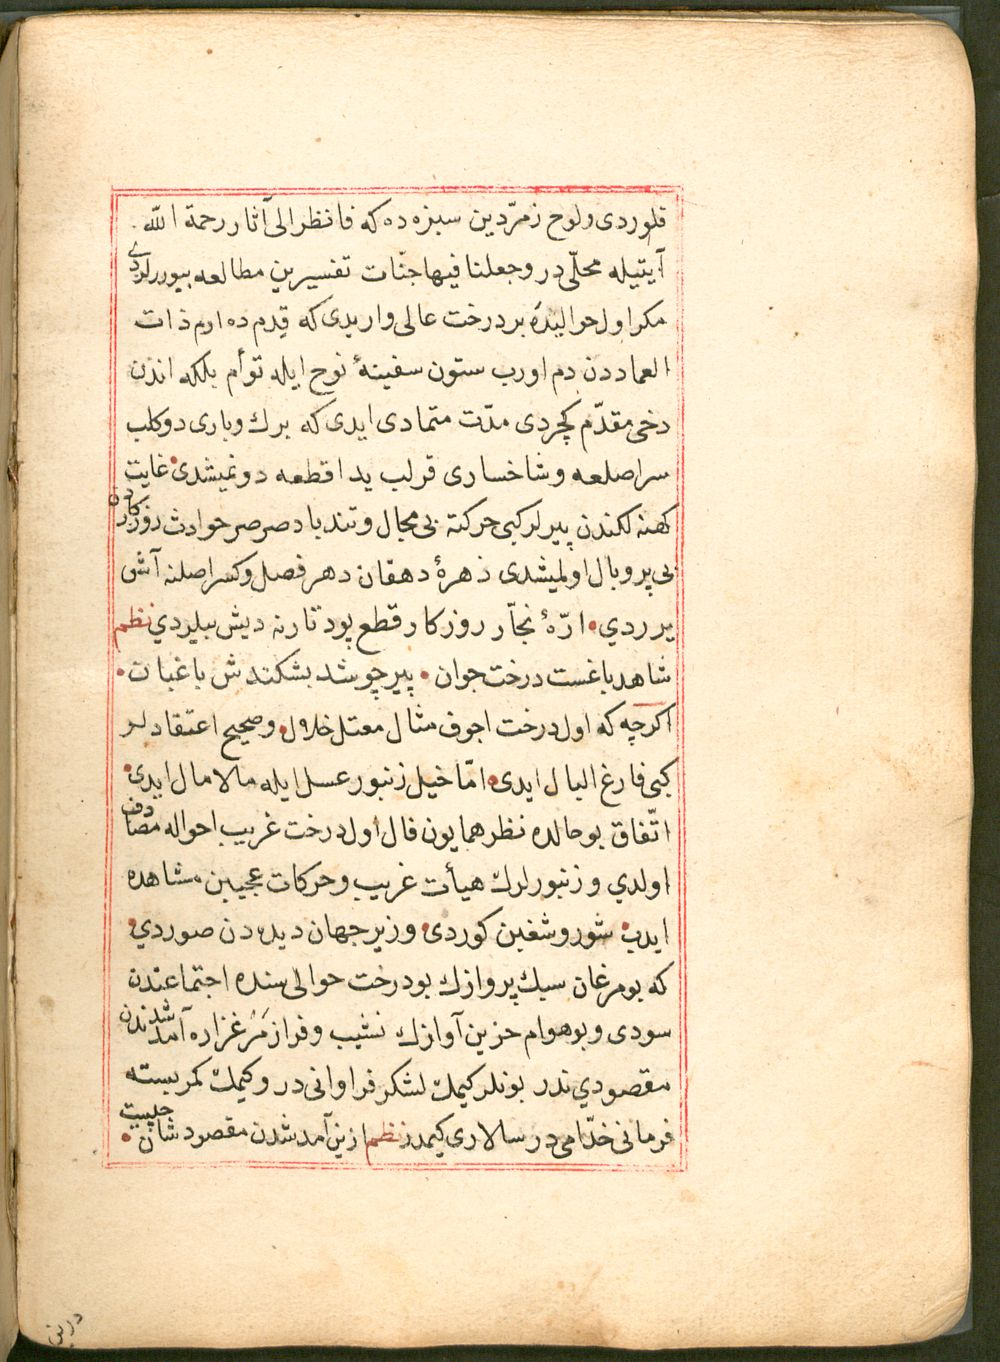 قلوردی ولوح زمرّدین سبزه ده که فانظر الی آثار رحمة الله
آیتیله محلّی در وجعلنا فیها جنّات تفسیرین مطالعه بیوررلردی
مکر اول حوالیده بر درخت عالی وار یدی که قدم ده ارم ذات
العماد دن دم اورب ستون سفینهٔ نوح ایله توأم بلکه اندن
دخی مقدّم کچردی مدّت متمادی ایدی که برك وباری دوکلب
سر اصلعه وشاخساری قرلب ید اقطعه دونمیشدی غایت
کهنه لکندن پیرلر کبی حرکته بی مجال وتندباد صرصر حوادث روزکاردن
بی پر وبال اولمیشدی زهرهٔ دهقان دهر فصل وکسر اصلنه آتش
یرردی ارّهٔ نجّار روزکار قطع پود تارنه دیش بیلردي نظم
شاهد باغست درخت جوان پیر چو شد بشکندش باغبان
اکرچه که اول درخت اجوف مثال معتل خلال وصحیح اعتقادلر
کبی فارغ البال ایدی امّا خیل زنبور عسل ایله مالامال ایدی
اتّفاق بو حالده نظر همایون فال اول درخت غریب احواله مصادف
اولدي وزنبورلرك هیأت غریب وحرکات عجیبن مشاهده
ایدب شور وشغبن کوردی وزیر جهان دیده دن صوردي
که بو مرغان سبك پروازك بو درخت حوالی سنده اجتماعندن
سودی وبو هوام حزین آوازك نشیب وفراز مرغزاره آمد شدندن
مقصودي ندر بونلر کیمك لشکر فراوانی در وکیمك کمر بسته
فرمانی خدّامی در سالاری کیمدر نظم ازین آمد شدن مقصود شان چیست
درین